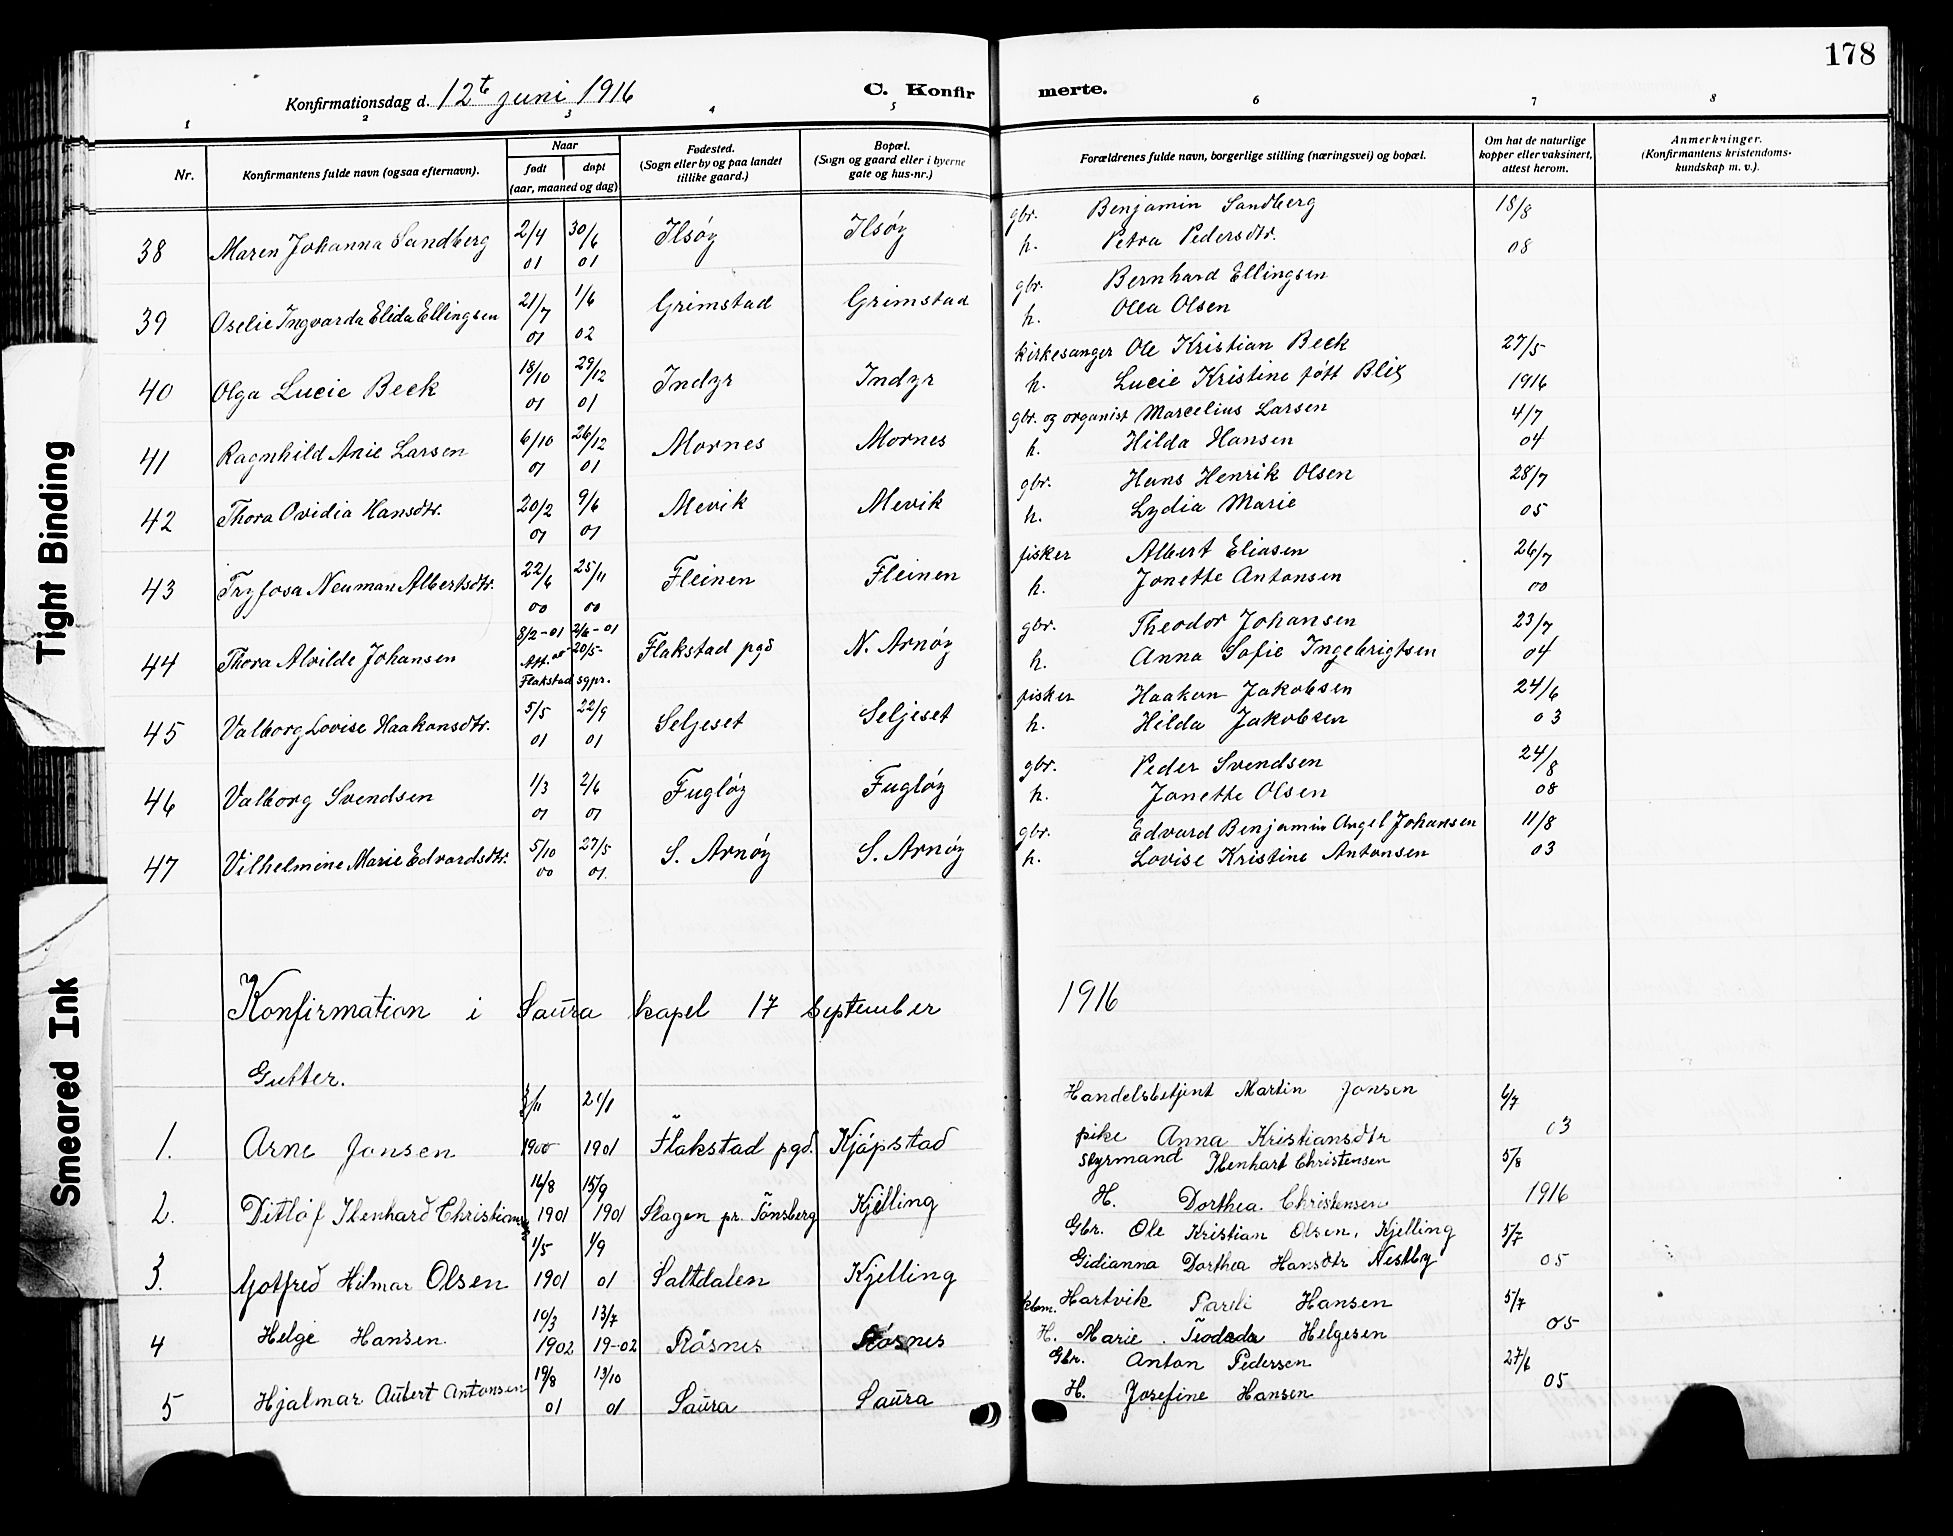 178
Konfirmationsdag d. 12t juni 1916
C. Konfirmerte.
1 2 3 4 5 6 7 8
Nr.
Konfirmantens fulde navn (ogsaa efternavn).
Naar
født døpt
(aar, maaned og dag)
Fødested.
(Sogn eller by og paa landet
tillike gaard.)
Bopæl.
(Sogn og gaard eller i byerne
gate og hus-nr.)
Forældrenes fulde navn, borgerlige stilling (næringsvei) og bopæl.
Om hat de naturlige
kopper eller vaksinert,
attest herom.
Anmerkninger.
(Konfirmantens kristendoms-
kundskap m. v.).
38 Maren Johanna Sandberg 2/4 01 30/6 01 Ilsøy Ilsøy gbr. Benjamin Sandberg 18/8
h. Petra Pedersdtr. 08
39 Oselie Ingvarda Elida Ellingsen 21/7 01 1/6 02 Grimstad Grimstad gbr. Bernhard Ellingsen
h. Olea Olsen
40 Olga Lucie Beck 18/10 01 29/12 01 Indyr Indyr kirkesanger Ole Kristian Beck 27/5
h. Lucie Kristine født Blix 1916
41 Ragnhild Anie Larsen 6/10 01 26/12 01 Mornes Mornes gbr. og organist Marcelius Larsen 4/7
h. Hilda Hansen 04
42 Thora Ovidia Hansdtr. 20/2 01 9/6 01 Mevik Mevik gbr. Hans Henrik Olsen 28/7
h. Lydia Marie 05
43 Tryfosa Neuman Albertsdtr. 22/6 00 25/11 00 Fleinen Fleinen fisker Albert Eliasen 26/7
h. Jonette Antonsen 00
44 Thora Alvilde Johansen 8/2-01 2/6-01 Att. av 20/5- Flakstad sgpr. Flakstad pgd N. Arnøy gbr. Theodor Johansen 23/7
h. Anna Sofie Ingebrigtsen 04
45 Valborg Lovise Haakonsdtr. 5/5 01 22/9 01 Seljeset Seljeset fisker Haakon Jakobsen 24/6
h. Hilda Jakobsen 03
46 Valborg Svendsen 1/3 01 2/6 01 Fugløy Fugløy gbr. Peder Svendsen 24/8
h. Jonette Olsen 08
47 Vilhelmine Marie Edvardsdtr. 5/10 00 27/5 01. S. Arnøy S. Arnøy gbr. Edvard Benjamin Angel Johansen 11/8
h. Lovise Kristine Antonsen 03
Konfirmation i Saura kapel 17 september 1916
Gutter.
1. Arne Jonsen /11 1900 2/1 1901 Flakstad pgd. Kjøpstad Handelsbetjent Martin Jonsen 6/7
pike Anna Kristiansdtr 03
2. Ditlof Ihenhard Christiansen 16/8 1901 15/9 1901 Slagen pr. Tönsberg Kjelling styrmand Ihenhart Christensen 5/8
H. Dorthea Christensen 1916
3. Gotfred Hilmar Olsen 1/5 1901 1/9 01 Saltdalen Kjelling Gbr. Ole Kristian Olsen, Kjelling 5/7
Gidianna Dorthea Hansdtr Nestby 05
4 Helge Hansen 10/3 1902 13/7 19-02 Røsnes Røsnes Hartvik Pareli Hansen 5/7
H. Marie Teodeda Helgesen 05
5 Hjalmar Aubert Antonsen 19/8 01 13/10 01 Saura Saura Gbr. Anton Pedersen 27/6
H. Josefine Hansen 05
Tight Binding
Smeared Ink